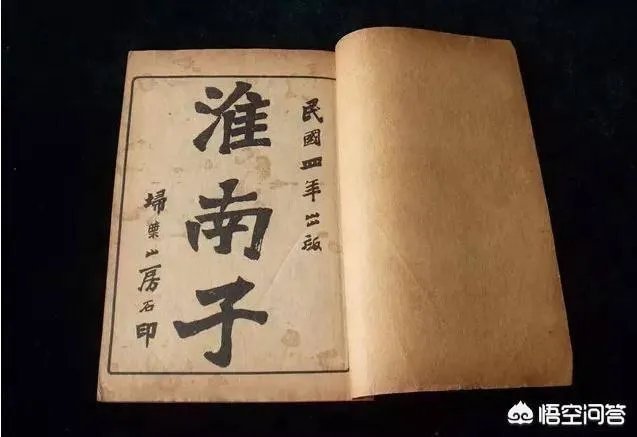 民國四年出版
淮南子
埽葉山房石印
悟空问答